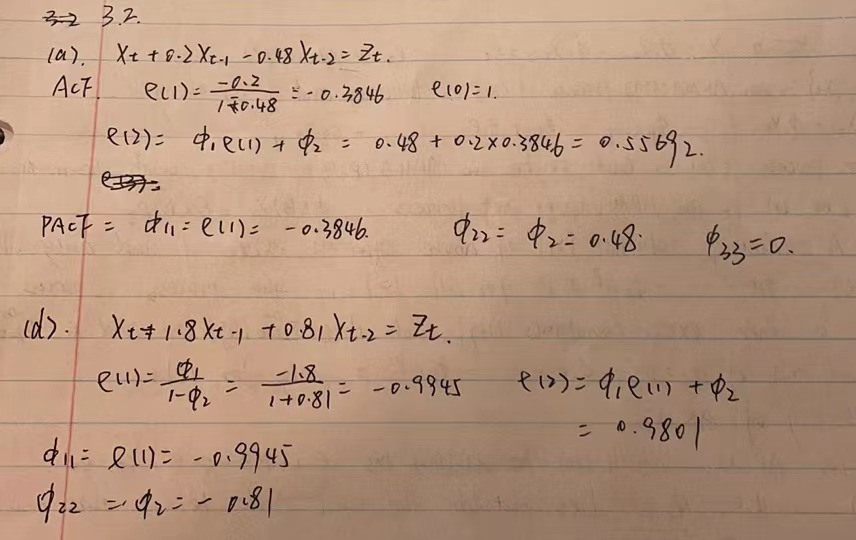 3.2.
(a). Xt + 0.2Xt-1 - 0.48Xt-2 = Zt.
ACF. ρ(1) = -0.2/(1-0.48) = -0.3846 ρ(0)=1.
ρ(2) = ϕ1ρ(1) + ϕ2 = 0.48 + 0.2×0.3846 = 0.55692.
PACF = ϕ11 = ρ(1) = -0.3846. ϕ22 = ϕ2 = 0.48. ϕ33 = 0.
(d). Xt + 1.8Xt-1 + 0.81Xt-2 = Zt.
ρ(1) = ϕ1/(1-ϕ2) = -1.8/(1+0.81) = -0.9945 ρ(2) = ϕ1ρ(1) + ϕ2
= 0.9801
ϕ11 = ρ(1) = -0.9945
ϕ22 = ϕ2 = -0.81